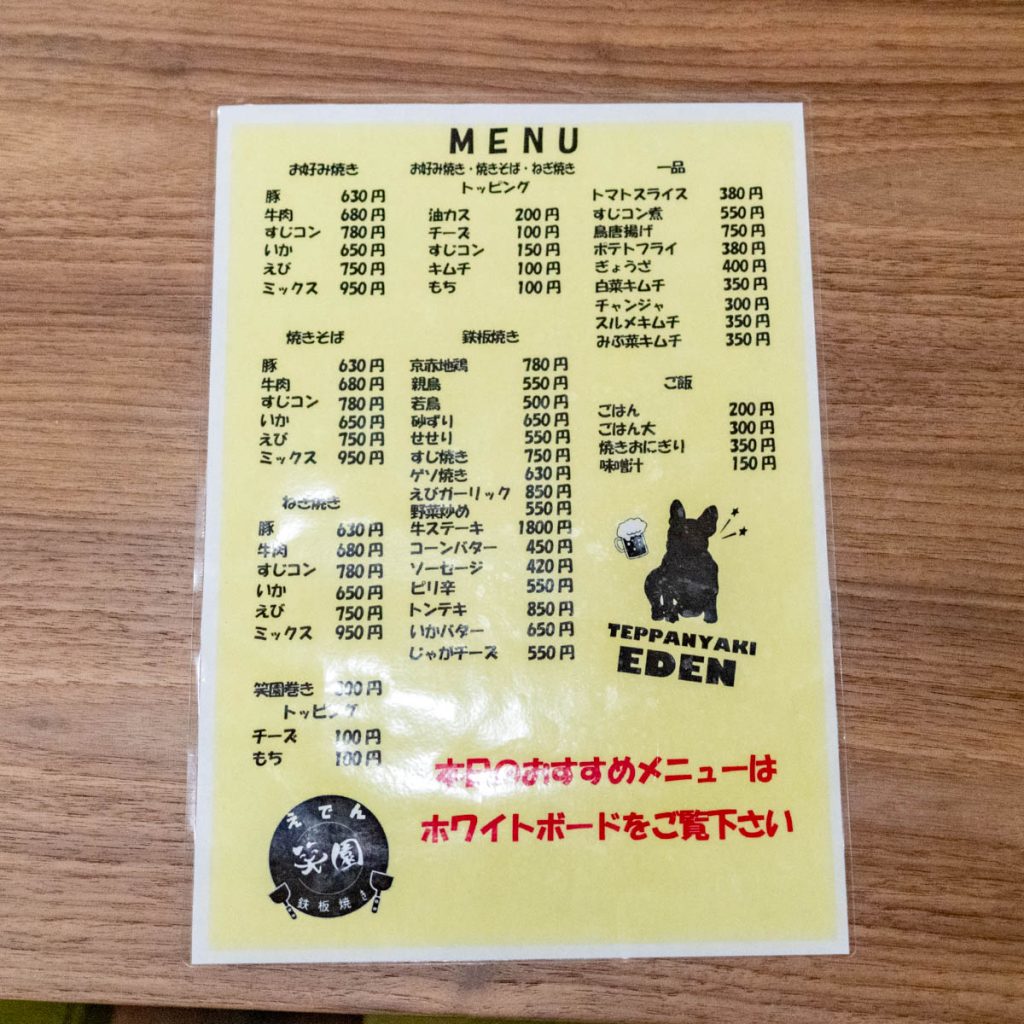 MENU
お好み焼き
豚 630円
牛肉 680円
すじコン 780円
いか 650円
えび 750円
ミックス 950円
焼きそば
豚 630円
牛肉 680円
すじコン 780円
いか 650円
えび 750円
ミックス 950円
ねぎ焼き
豚 630円
牛肉 680円
すじコン 780円
いか 650円
えび 750円
ミックス 950円
笑園巻き 円
トッピング
チーズ 100円
もち 100円
えでん
笑園
鉄板焼き
お好み焼き・焼きそば・ねぎ焼き
トッピング
油カス 200円
チーズ 100円
すじコン 150円
キムチ 100円
もち 100円
鉄板焼き
京赤地鶏 780円
親鳥 550円
若鳥 500円
砂ずり 650円
せせり 550円
すじ焼き 750円
ゲソ焼き 630円
えびガーリック 850円
野菜炒め 550円
牛ステーキ 1800円
コーンバター 450円
ソーセージ 420円
ピリ辛 550円
トンテキ 850円
いかバター 650円
じゃがチーズ 550円
一品
トマトスライス 380円
すじコン煮 550円
鳥唐揚げ 750円
ポテトフライ 380円
ぎょうざ 400円
白菜キムチ 350円
チャンジャ 300円
スルメキムチ 350円
みぶ菜キムチ 350円
ご飯
ごはん 200円
ごはん大 300円
焼きおにぎり 350円
味噌汁 150円
TEPPANYAKI
EDEN
本日のおすすめメニューは
ホワイトボードをご覧下さい